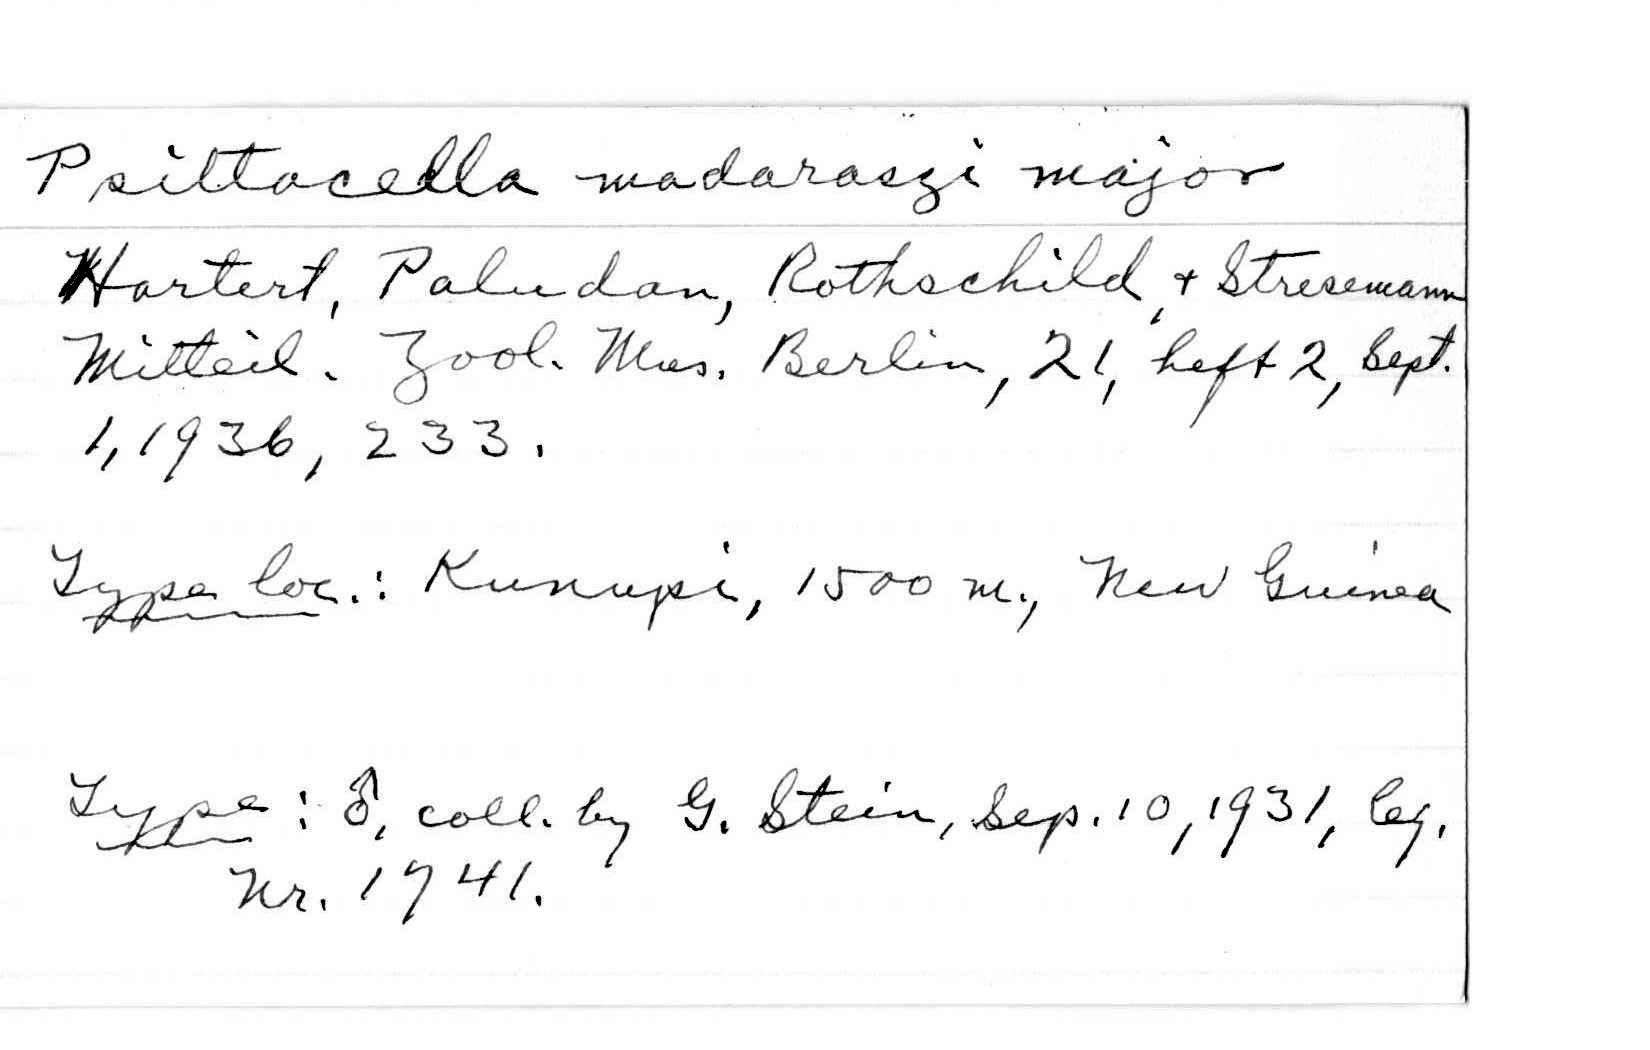 Psittacella madaraszi major
Hartert, Paludan, Rothschild, + Stresemann
Mitteil. Zool. Mus. Berlin, 21, heft 2, Sept.
1, 1936, 233.
Type loc.: Kunupi, 1500 m., New Guinea
Type: ♂, coll. by G. Stein, Sep. 10, 1931, leg.
Nr. 1741.